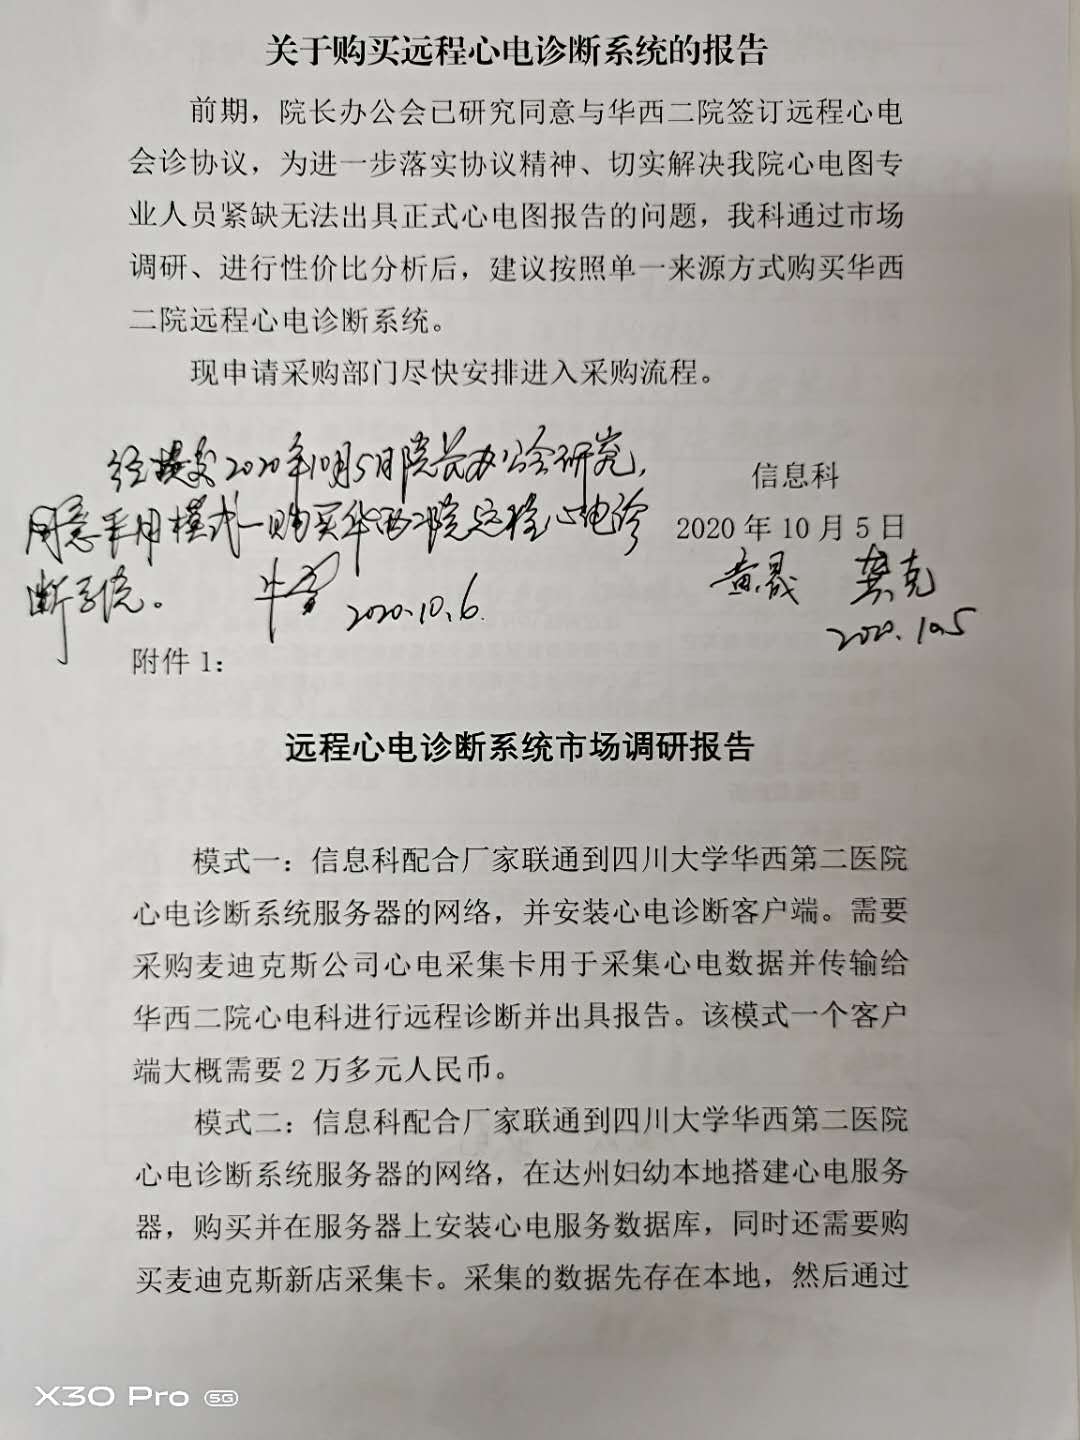 关于购买远程心电诊断系统的报告
前期，院长办公会已研究同意与华西二院签订远程心电
会诊协议，为进一步落实协议精神、切实解决我院心电图专
业人员紧缺无法出具正式心电图报告的问题，我科通过市场
调研、进行性价比分析后，建议按照单一来源方式购买华西
二院远程心电诊断系统。
现申请采购部门尽快安排进入采购流程。
经提交2020年10月5日院长办公会研究，
同意采用模式一购买华西二院远程心电诊
断系统。
2020.10.6.
信息科
2020 年 10 月 5 日
黄晟 龚克
2020.10.5
附件 1：
远程心电诊断系统市场调研报告
模式一：信息科配合厂家联通到四川大学华西第二医院
心电诊断系统服务器的网络，并安装心电诊断客户端。需要
采购麦迪克斯公司心电采集卡用于采集心电数据并传输给
华西二院心电科进行远程诊断并出具报告。该模式一个客户
端大概需要 2 万多元人民币。
模式二：信息科配合厂家联通到四川大学华西第二医院
心电诊断系统服务器的网络，在达州妇幼本地搭建心电服务
器，购买并在服务器上安装心电服务数据库，同时还需要购
买麦迪克斯新店采集卡。采集的数据先存在本地，然后通过
X30 Pro 5G